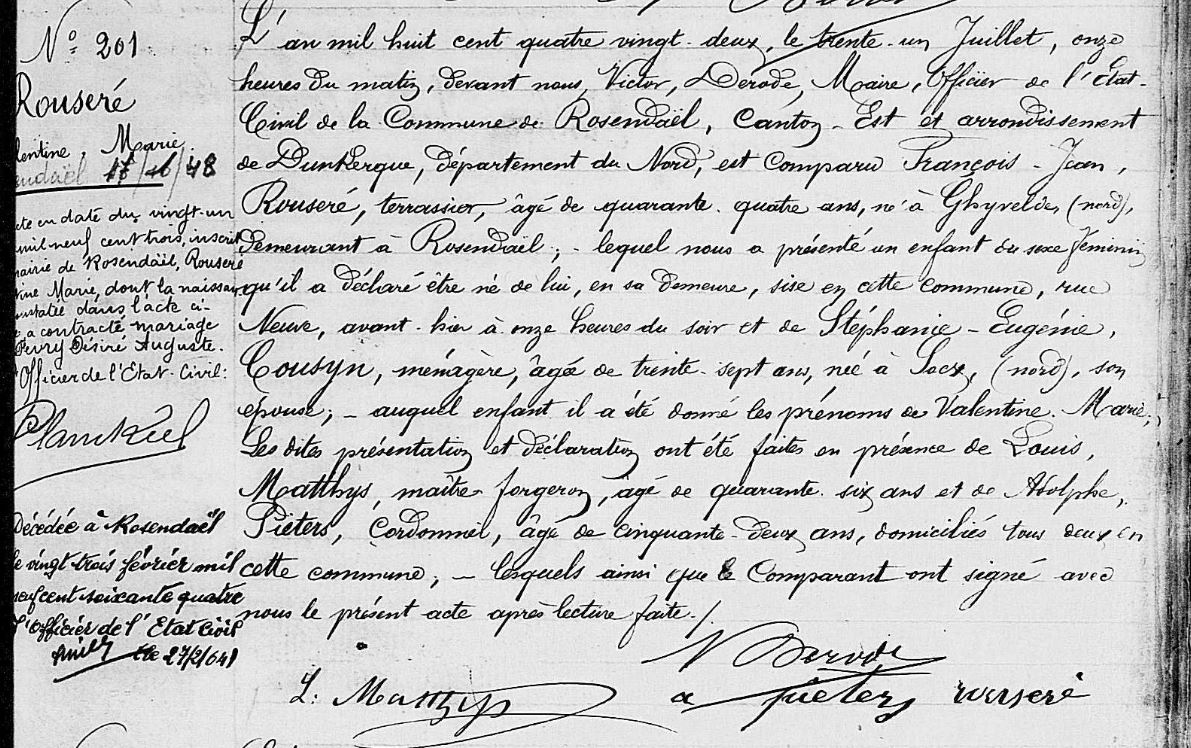 N° 201
Rouseré
lentine, Marie.
endaël 17/16/48
cte en date du vingt-un
mil neuf cent trois, inscrit
mairie de Rosendaël, Rouseré
tine Marie, dont la naissan
nstatée dans l'acte ci-
a contracté mariage
Désiré Auguste.
Officier de l'Etat-Civil:
Décédée à Rosendaël
le vingt trois février mil
neuf cent soixante quatre
l'Officier de l'Etat Civil
le 27/2/64
L'an mil huit cent quatre vingt-deux, le trente-un Juillet, onze
heures du matin, devant nous, Victor, Derode, Maire, Officier de l'Etat-
Civil de la Commune de Rosendaël, Canton-Est et arrondissement
de Dunkerque, département du Nord, est Comparu François-Jean,
Rouseré, terrassier, âgé de quarante-quatre ans, né à Ghyvelde, (nord),
demeurant à Rosendaël; - lequel nous a présenté un enfant du sexe féminin
qu'il a déclaré être né de lui, en sa demeure, sise en cette commune, rue
Neuve, avant-hier à onze heures du soir et de Stéphanie-Eugénie,
Cousyn, ménagère, âgée de trente-sept ans, née à Socx, (nord), son
épouse; - auquel enfant il a été donné les prénoms de Valentine. Marie;
Les dites présentation et déclaration ont été faites en présence de Louis,
Matthys, maître-forgeron, âgé de quarante-six ans et de Adolphe,
Pieters, Cordonnier, âgé de cinquante-deux ans, domiciliés tous deux en
cette commune; - lesquels ainsi que le Comparant ont signé avec
nous le présent acte après lecture faite./
V Derode
L. Matthys a pieters rouseré